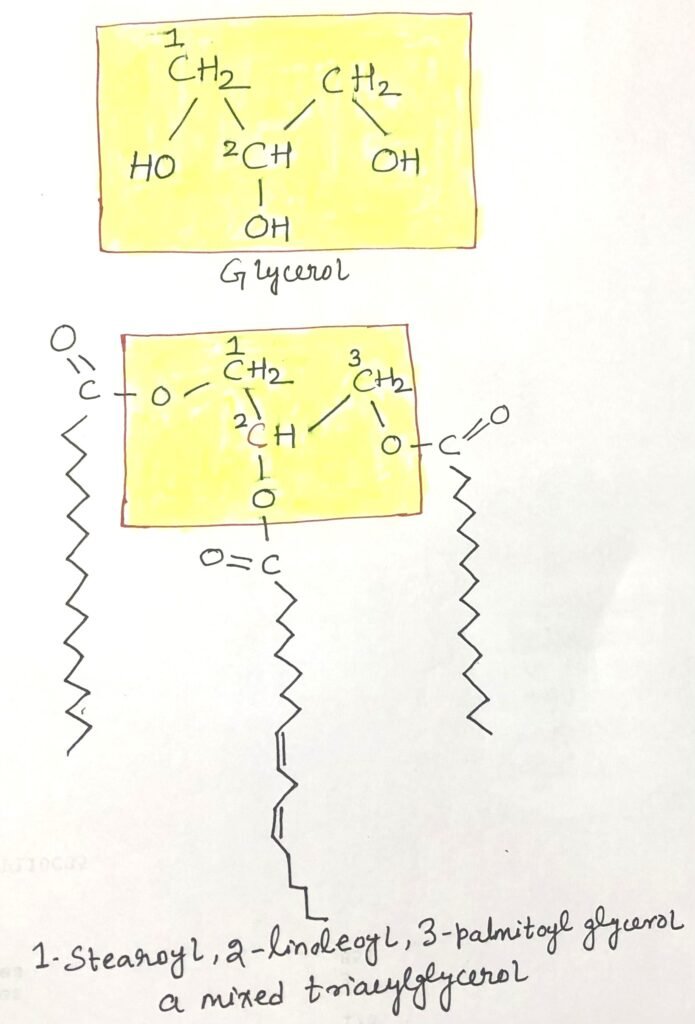 1
CH2 CH2
HO 2CH OH
OH
Glycerol
O 1 3
C O CH2 CH2 O
2CH O C
O
O=C
1-Stearoyl, 2-linoleoyl, 3-palmitoyl glycerol
a mixed triacylglycerol